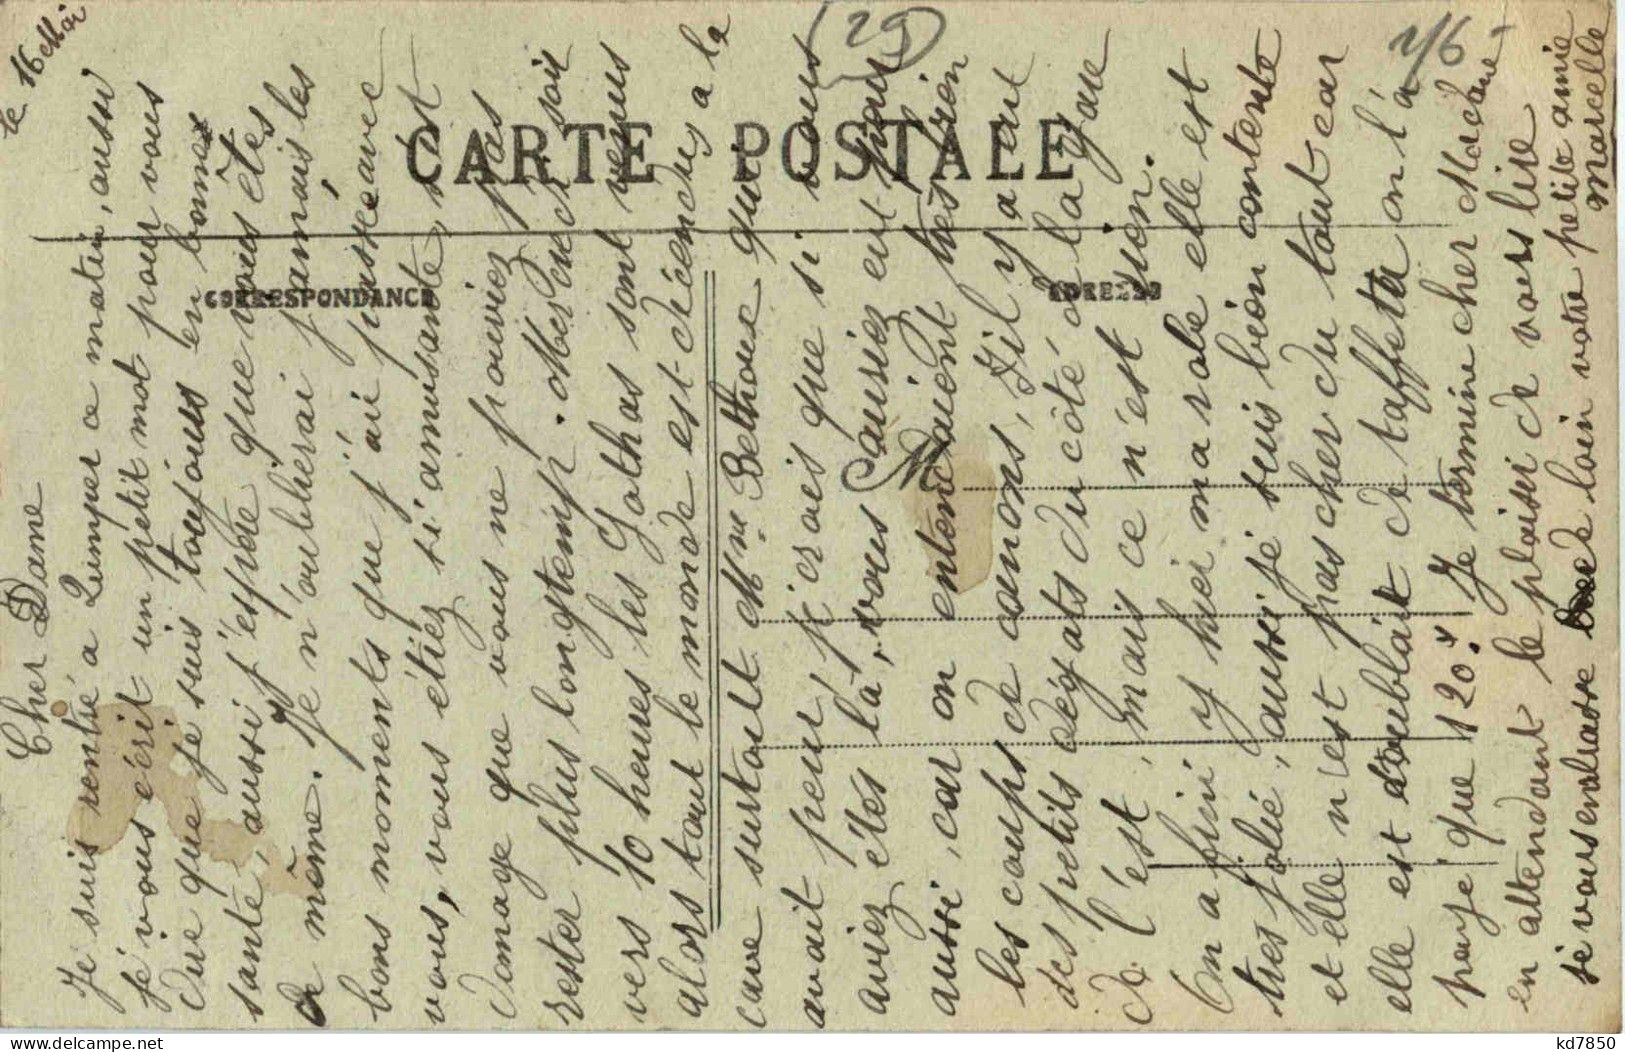 le 16 Mai
Cher Dame
Je suis rentré a Quimper ce matin, aussi
je vous écrit un petit mot pour vous
dire que je suis toujours en bonnes
santé, aussi j'espère que vous êtes
de même. Je n'oublierai jamais les
bons moments que j'ai passé avec
vous, vous étiez si amusante, s'est
domage que vous ne pouviez pas
rester plus longtemp. Mercredi soir
vers 10 heures les Gothas sont venus
alors tout le monde est décendus a la
cave surtout Mme Bethoue qui
avait peur, j'crois que si vous
aviez étés là, vous l'auriez eut peur
aussi, car on entendaient très bien
les coups de canons, Il y a eut
des petits dégats du côté de la gare
de l'est, mais ce n'est rien.
On a fini y hier ma robe elle est
tres jolie, aussi je suis bien contente
et elle n'est pas cher du tout car
elle est doublait de taffeta on l'a
payé que 120f. Je termine cher Madame
en attendant le plaisir de vous lire
je vous embrasse de loin votre petite amie
Marcelle
CARTE POSTALE
CORRESPONDANCE
ADRESSE
M
29
kd7850